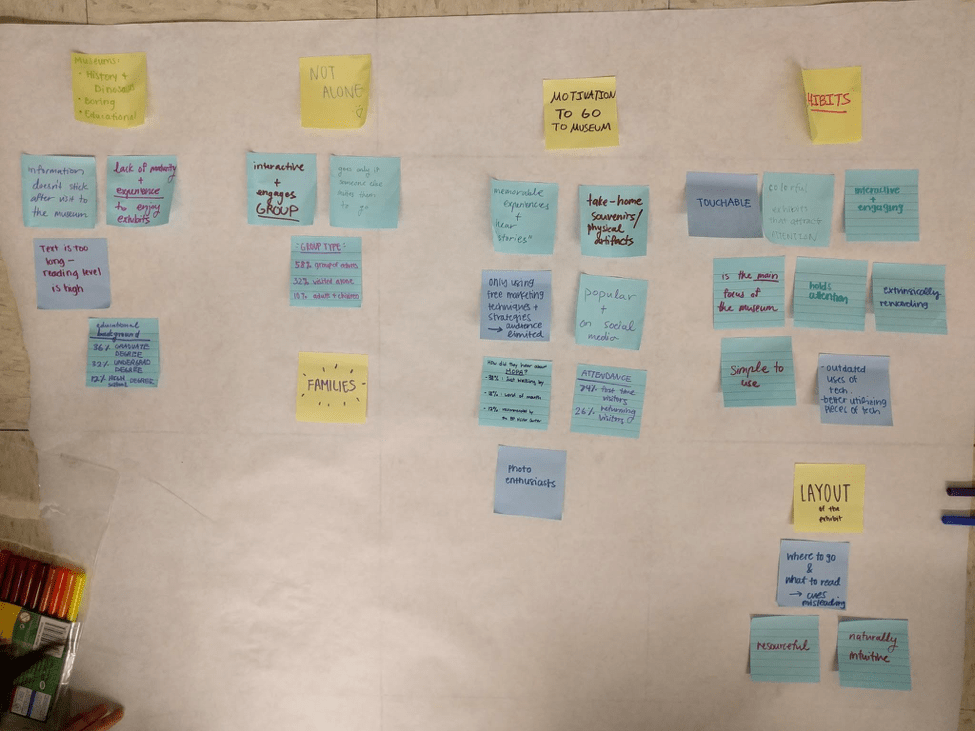 Museums:
• History +
Dinosaurs
• Boring
• Educational
information
doesn't stick
after visit to
the museum
lack of maturity
+
experience
to enjoy
exhibits
Text is too
long –
reading level
is high
educational
background
36% GRADUATE
DEGREE
32% UNDERGRAD
DEGREE
NOT
ALONE
interactive
+
engages
GROUP
goes only if
someone else
to go
GROUP TYPE:
58% group of adults
32% visited alone
10% adults + children
FAMILIES
MOTIVATION
TO GO
TO MUSEUM
memorable
experiences
+
hear
stories"
take-home
souvenirs/
physical
artifacts
only using
free marketing
techniques +
strategies
→ audience
limited
popular
+
on social
media
How did they hear about
MOPA?
- 38% : Just walking by
word of mouth
recommended by
ATTENDANCE
74% first time
visitors
26% returning
visitors
Photo
enthusiasts
HIBITS
TOUCHABLE
colorful
exhibits
that attract
ATTENTION
interactive
+
engaging
is the main
focus of
the museum
holds
attention
extrinsically
rewarding
Simple to
use
- outdated
uses of
tech.
- better utilizing
pieces of tech
LAYOUT
of the
exhibit
where to go
&
what to read
→ cues
misleading
resourceful
naturally
intuitive